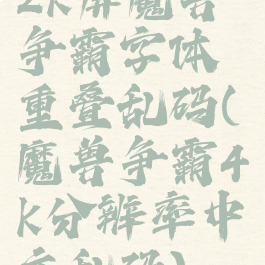 2K屏魔兽
争霸字体
重叠乱码(
魔兽争霸4
K分辨率中
文乱码)